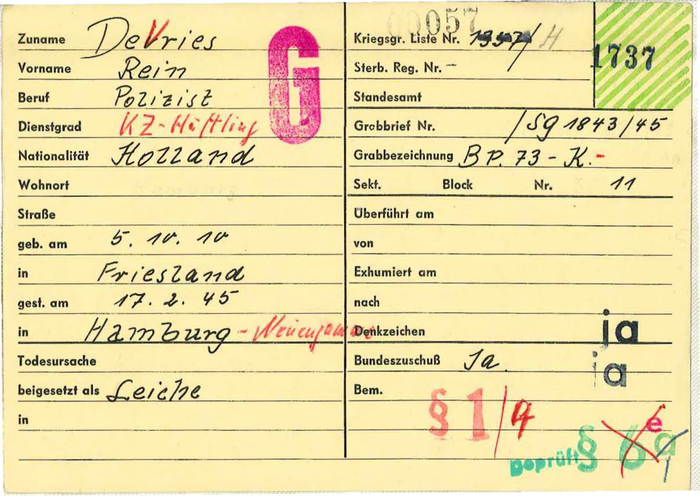 Zuname DeVries
Vorname Rein
Beruf Polizist
Dienstgrad KZ-Häftling
Nationalität Holland
Wohnort
Straße
geb. am 5. 10. 10
in Friesland
gest. am 17. 2. 45
in Hamburg - Neuengamme
Todesursache
beigesetzt als Leiche
in
G
00057
Kriegsgr. Liste Nr. H
1737
Sterb. Reg. Nr. -
Standesamt
Grabbrief Nr. /Sg 1843/45
Grabbezeichnung B P. 73 - K. -
Sekt. Block Nr. 11
Überführt am
von
Exhumiert am
nach
Denkzeichen ja
Bundeszuschuß Ja. ja
Bem.
§ 1/4
Geprüft § 6 e a